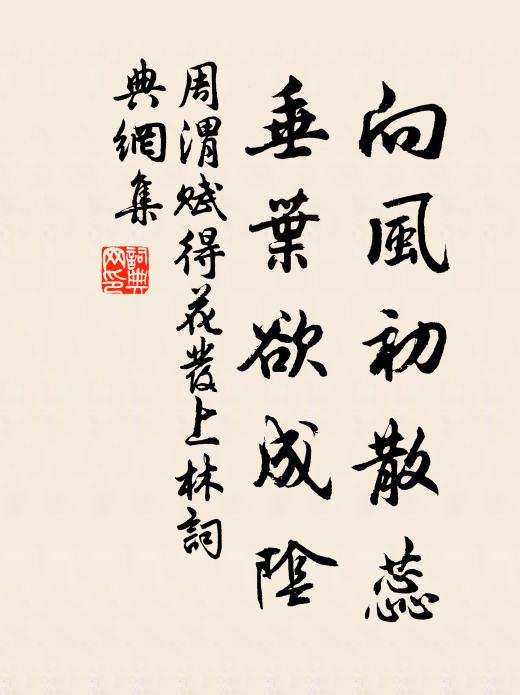 向風初散蕊
垂葉欲成陰
周渭賦得花發上林詞
典網集
詞典網印